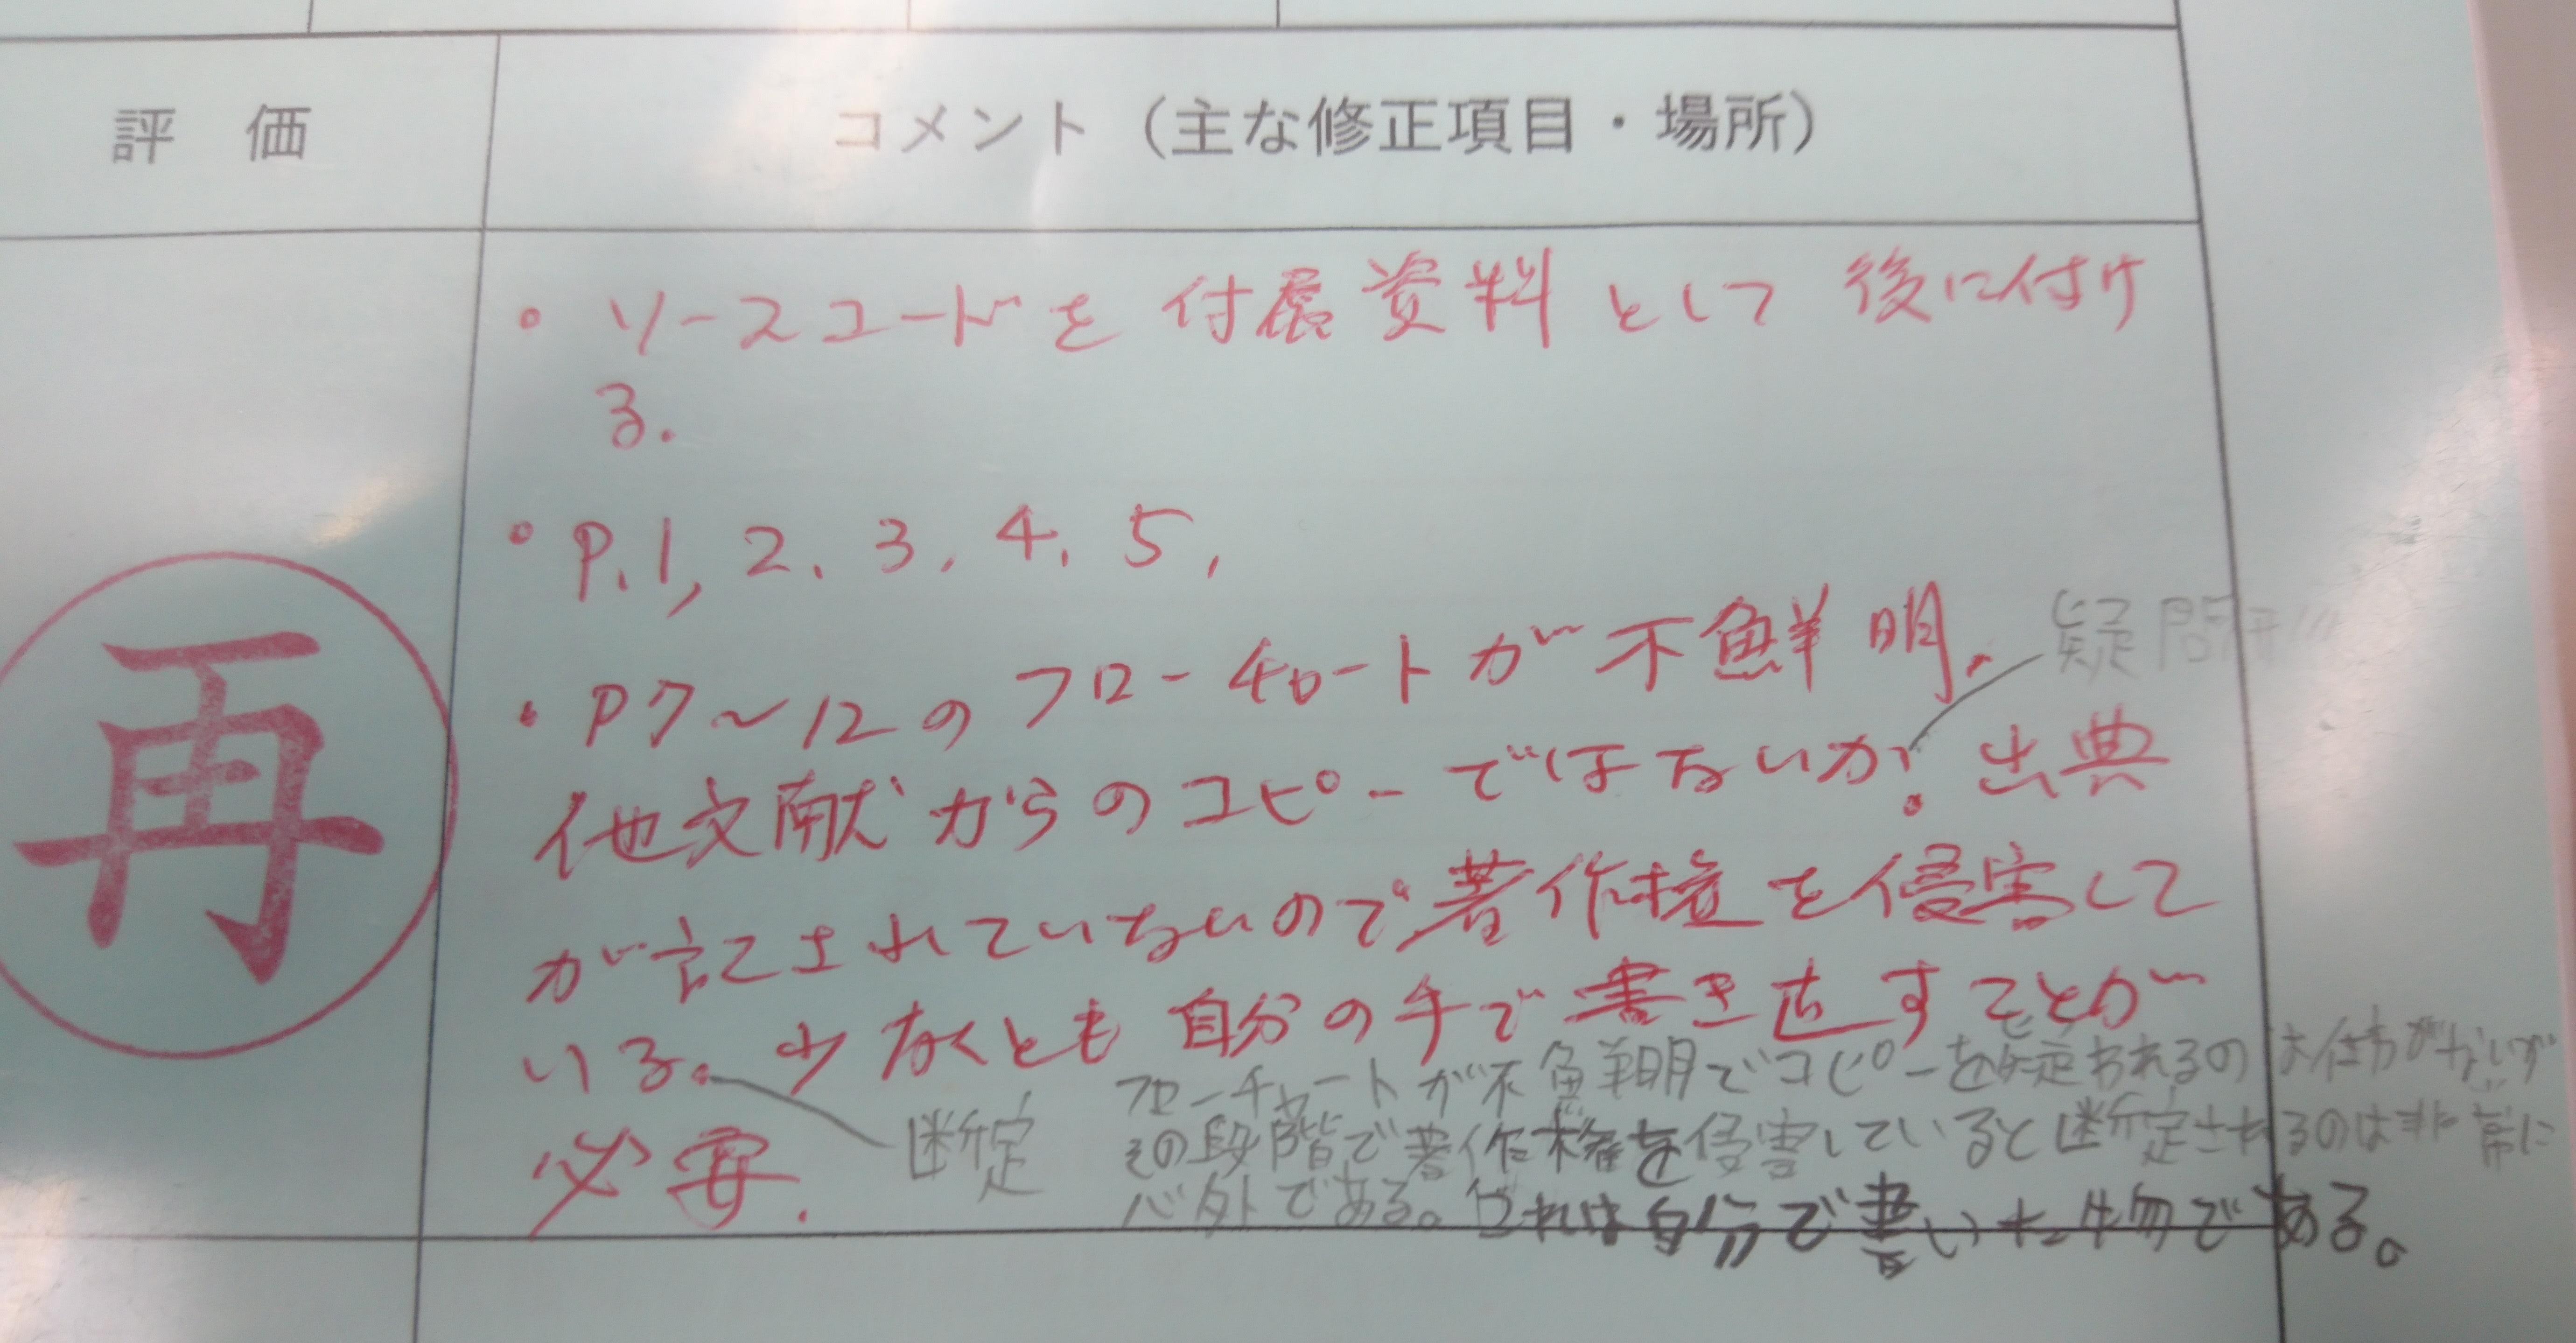 評 価
コメント（主な修正項目・場所）
・ソースコードを付属資料として後に付け
る.
・P.1, 2, 3, 4, 5,
・P7～12のフローチャートが不鮮明.
疑問
他文献からのコピーではないか? 出典
が記されていないので著作権を侵害して
いる。少なくとも自分の手で書き直すことが
必要.
断定
フローチャートが不鮮明でコピーを疑われるのは仕方がないが
その段階で著作権を侵害していると断定されるのは非常に
心外である。これは自分で書いた物である。
再